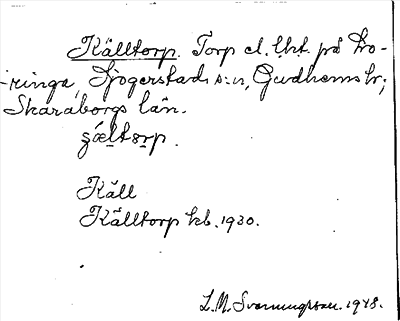 Källtorp. Torp el. lht. på Do-
-ringa, Sjogerstads s:n, Gudhems hr;
Skaraborgs län.
Käll
Källtorp kb. 1930.
L.M. Svanungsson. 1948.